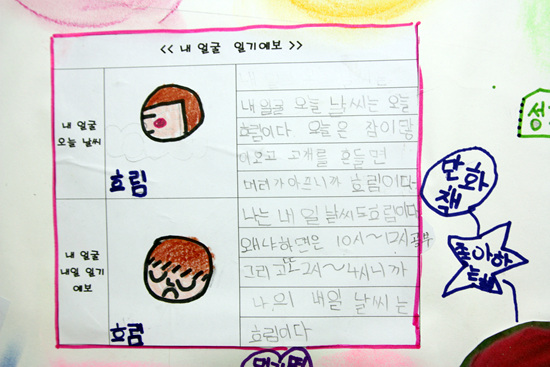 << 내 얼굴 일기예보 >>
내 얼굴
오늘 날씨
흐림
내 얼굴 오늘 날씨는 오늘
흐림이다 오늘은 잠이 많
이오고 고개를 흔들면
머리가아프니까 흐림이다
내 얼굴
내일 일기
예보
흐림
나는 내 일 날씨도흐림이다
왜냐하면은 10시~12시 공부
그리고 또 2시~4시니까
나의 내일 날씨는
흐림이다
만화
책
좋아하
는
성